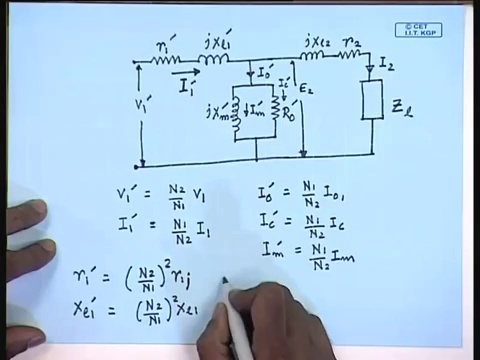 © CET
I.I.T. KGP
r₁′ jxl₁′ jxl₂ r₂
I₁′ I₀′ Ic′ I₂
V₁′ jXm′ Im′ R₀′ E₂ Zl
V₁′ = N₂/N₁ V₁
I₁′ = N₁/N₂ I₁
I₀′ = N₁/N₂ I₀,
Ic′ = N₁/N₂ Ic
Im′ = N₁/N₂ Im
r₁′ = (N₂/N₁)² r₁;
Xl₁′ = (N₂/N₁)² Xl₁